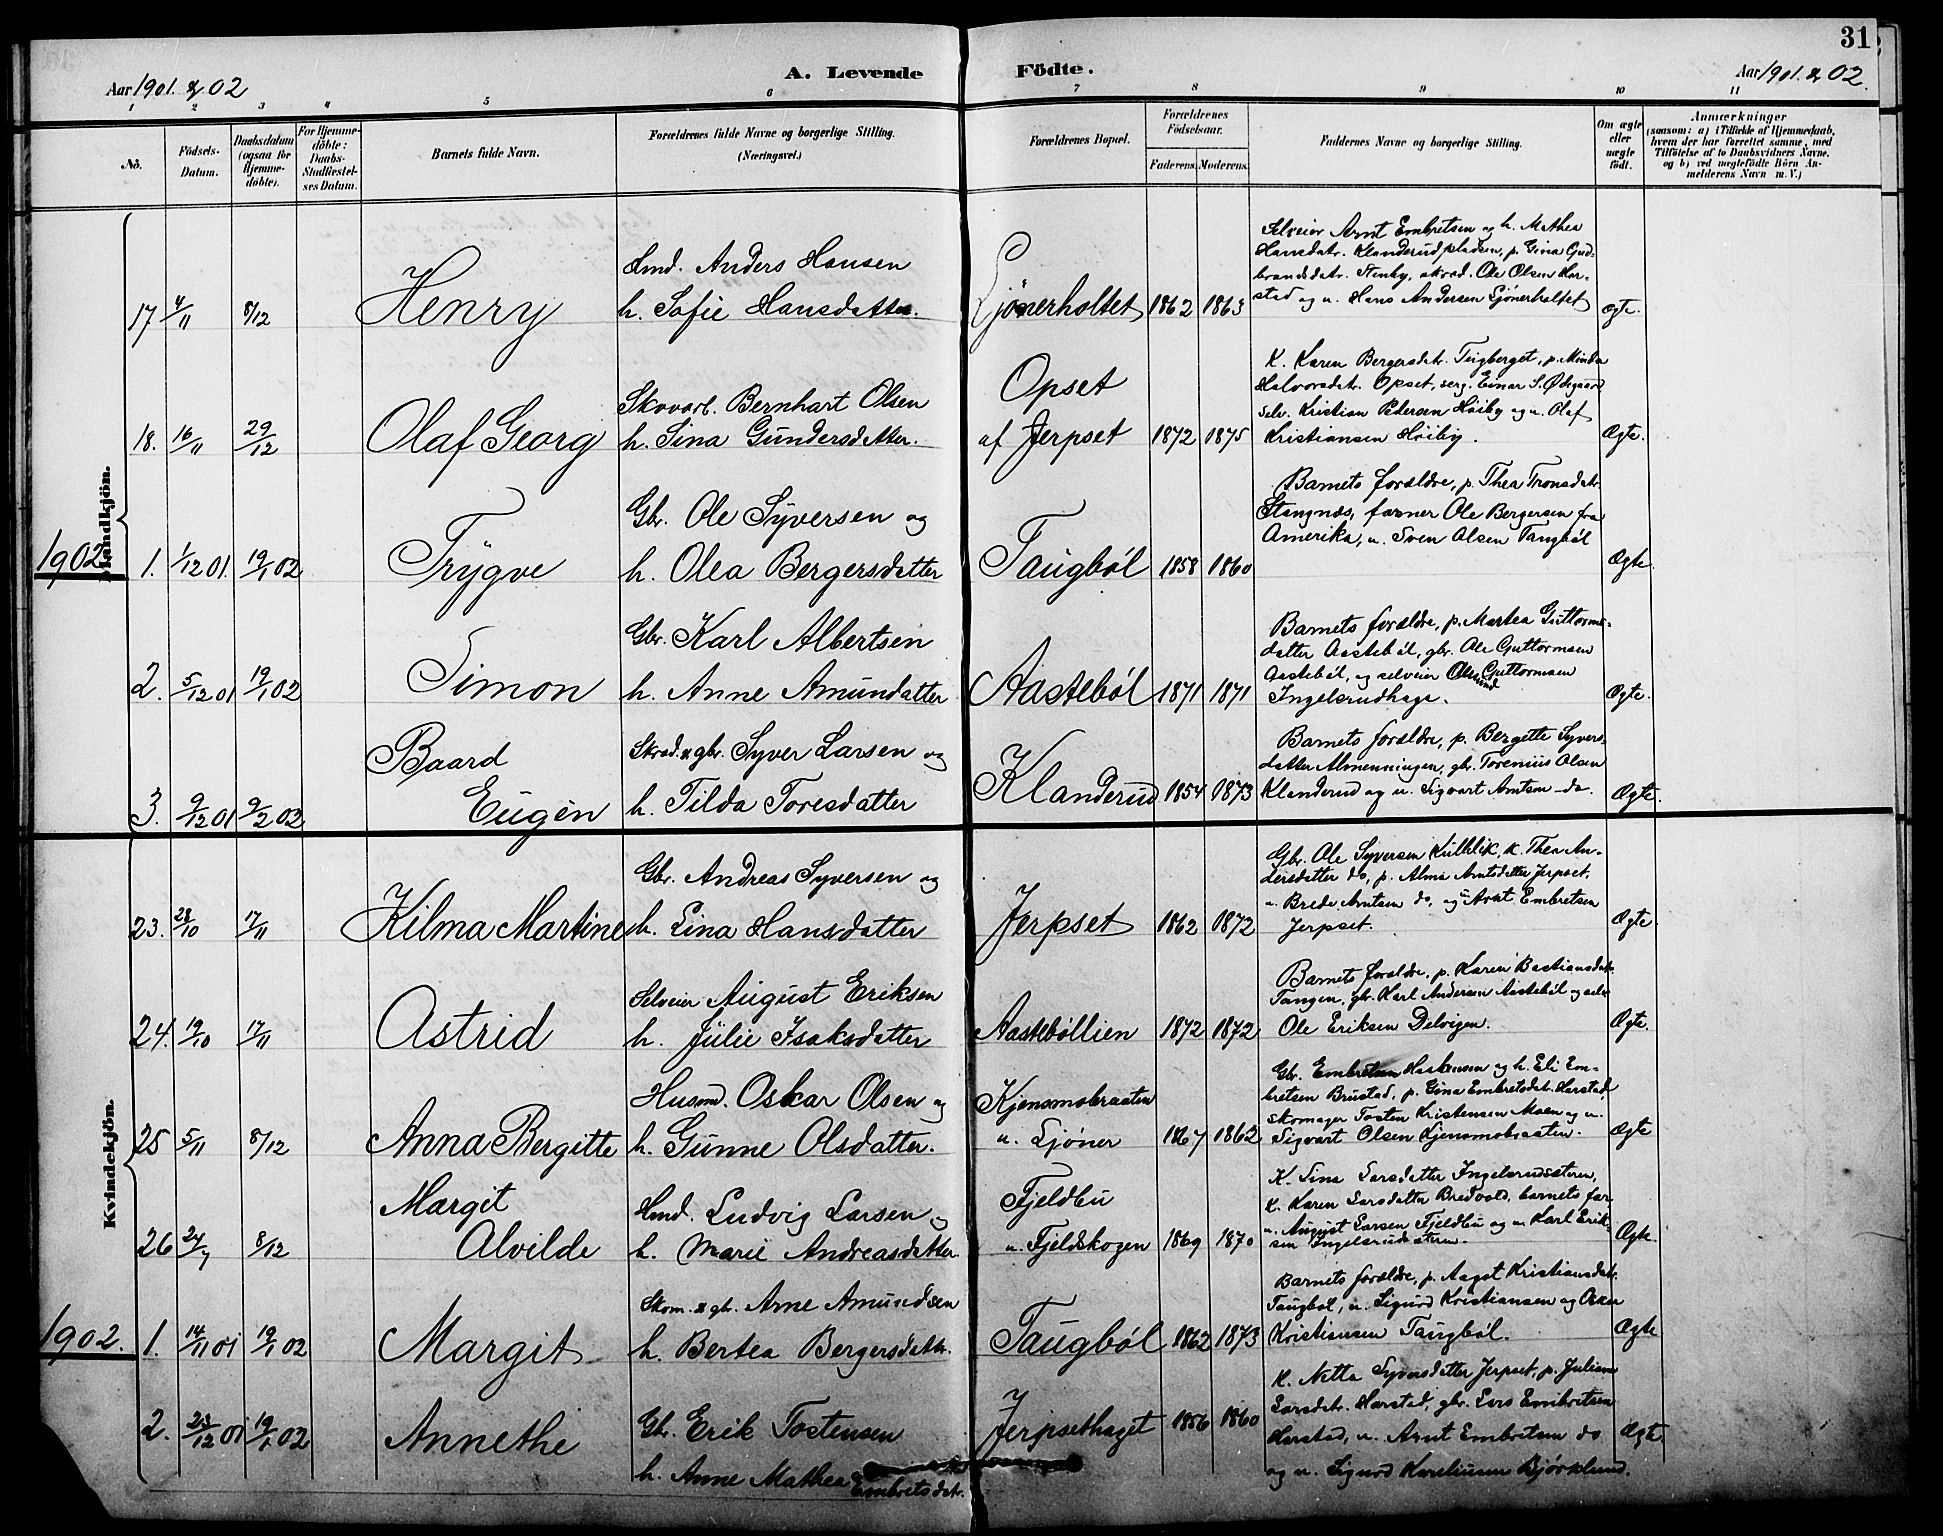 31
A. Levende Födte.
Aar 1901 & 02
Aar 1901 & 02.
1 2 3 4 5 6 7 8 9 10 11
No.
Födsels-Datum.
Daabsdatum (ogsaa for Hjemme-döbte).
For Hjemme-döbte: Daabs-Stadfæstel-ses Datum.
Barnets fulde Navn.
Forældrenes fulde Navne og borgerlige Stilling. (Næringsvei.)
Forældrenes Bopæl.
Forældrenes Födselsaar.
Faderens. Moderens.
Faddernes Navne og borgerlige Stilling.
Om ægte eller uægte födt.
Anmærkninger
(saasom: a) i Tilfælde af Hjemmedaab,
hvem der har forrettet samme, med
Tilföielse af to Daabsvidners Navne,
og b) ved uægtefödte Börn An-
melderens Navn m. V.)
Mandkjön.
17 4/11 8/12 Henry
Hmd. Anders Hansen
h. Sofie Hansdatter.
Ljönerholtet 1862 1863
Selveier Arnt Embretsen og h. Mathea
Hansdatr. Klanderudpladsen, p. Gina Gud-
brandsdatr. Stenby, skrad. Ole Olsen Har-
stad og u. Hans Andersen Ljönerholtet
Ægte.
18. 16/11 29/12 Olaf Georg
Skovarb. Bernhart Olsen
h. Sina Gundersdatter.
Opset
af Jerpset 1872 1875
K. Karen Bergersdtr. Teigberget, p. Minda
Halvorsdatr. Opset, serg. Einar S. Ødegaard
selv. Kristian Pedersen Høiby og u. Olaf
Kristiansen Høiby.
Ægte.
1902
1. 1/12 01. 19/1 02 Trygve
Gbr. Ole Syversen og
h. Olea Bergersdatter
Taugböl 1858 1860
Barnets forældre, p. Thea Tronsdatr.
Stangnæs, farmer Ole Bergersen fra
Amerika, u. Sven Olsen Taugböl
Ægte.
2. 5/12 01 19/1 02 Simon
Gbr. Karl Albertsen
h. Anne Amundatter
Aasteböl 1871 1871
Barnets forældre, p. Martea Guttorms-
datter Aasteböl, gbr. Ole Guttormsen
Aasteböl, og selveier Guttormsen
Ingelsrudhage.
Ægte.
3. 9/12 01 9/2 02 Baard
Eugèn
Skrad. & gbr. Syver Larsen og
h. Tilda Toresdatter
Klanderud 1854 1873
Barnets forældre, p. Bergitte Syvers-
datter Almenningen, gbr. Torenius Olsen
Klanderud og u. Sigvart Arntsen do.
Ægte.
Kvindekjön.
23. 28/10 17/11 Kilma Martine
Gbr. Andreas Syversen og
h. Lina Hansdatter
Jerpset 1862 1872
Gbr. Ole Syversen Kulblik, K. Thea An-
dersdatter do, p. Alma Arntsdatter Jerpset,
u. Brede Arntsen do, og Arnt Embretsen
Jerpset.
Ægte
24. 19/10 17/11 Astrid
Selveier August Eriksen
h. Julie Isaksdatter
Aastebøllien 1872 1872
Barnets forældre, p. Karen Bastiansdatr
Tangen, gbr. Karl Andersen Aasteböl og selv
Ole Eriksen Delvigen.
Ægte.
25 5/11 8/12 Anna Bergitte
Husmd. Oskar Olsen og
h. Gunne Olsdatter.
Kjensmobraaten
u. Ljöner 1867 1862
Gbr. Embretsen og h. Eli Em-
bretsen Brustad, p. Gina Embretsdtr. Harstad
skomager Tosten Kristensen Moen og u.
Sigvart Olsen Kjensmobraaten.
Ægte
26 24/7 8/12 Margit
Alvilde
Hmd. Ludvig Larsen og
h. Marie Andreasdatter.
Fjeldbu
u. Fjeldskogen 1869 1870
K. Sina Larsdatter Ingelsrudsæteren,
K. Karen Larsdatter Bredvold, barnets far
u. August Larsen Fjeldbu og u. Karl Erik-
sen Ingelsrudsætern.
Ægte.
1902.
1. 14/11 01 19/1 02 Margit
Skom. & gbr. Arne Amundsen
h. Bertea Bergersdatr.
Taugböl 1862 1873
Barnets forældre, p. Aagot Kristiansdatr.
Taugböl, u. Sigurd Kristiansen og Oskar
Kristiansen Taugböl.
Ægte
2. 23/12 01 19/1 02 Annethe
Gbr. Erik Tostensen
h. Anne Mathea Embretsdatr.
Jerpsethaget 1856 1860
K. Netta Syversdatter Jerpset, p. Juliane
Larsdatr. Harstad, gbr. Lars Embretsen
Harstad, u. Arnt Embretsen do
og u. Sigurd Kareliusen Bjørklund.
Ægte.